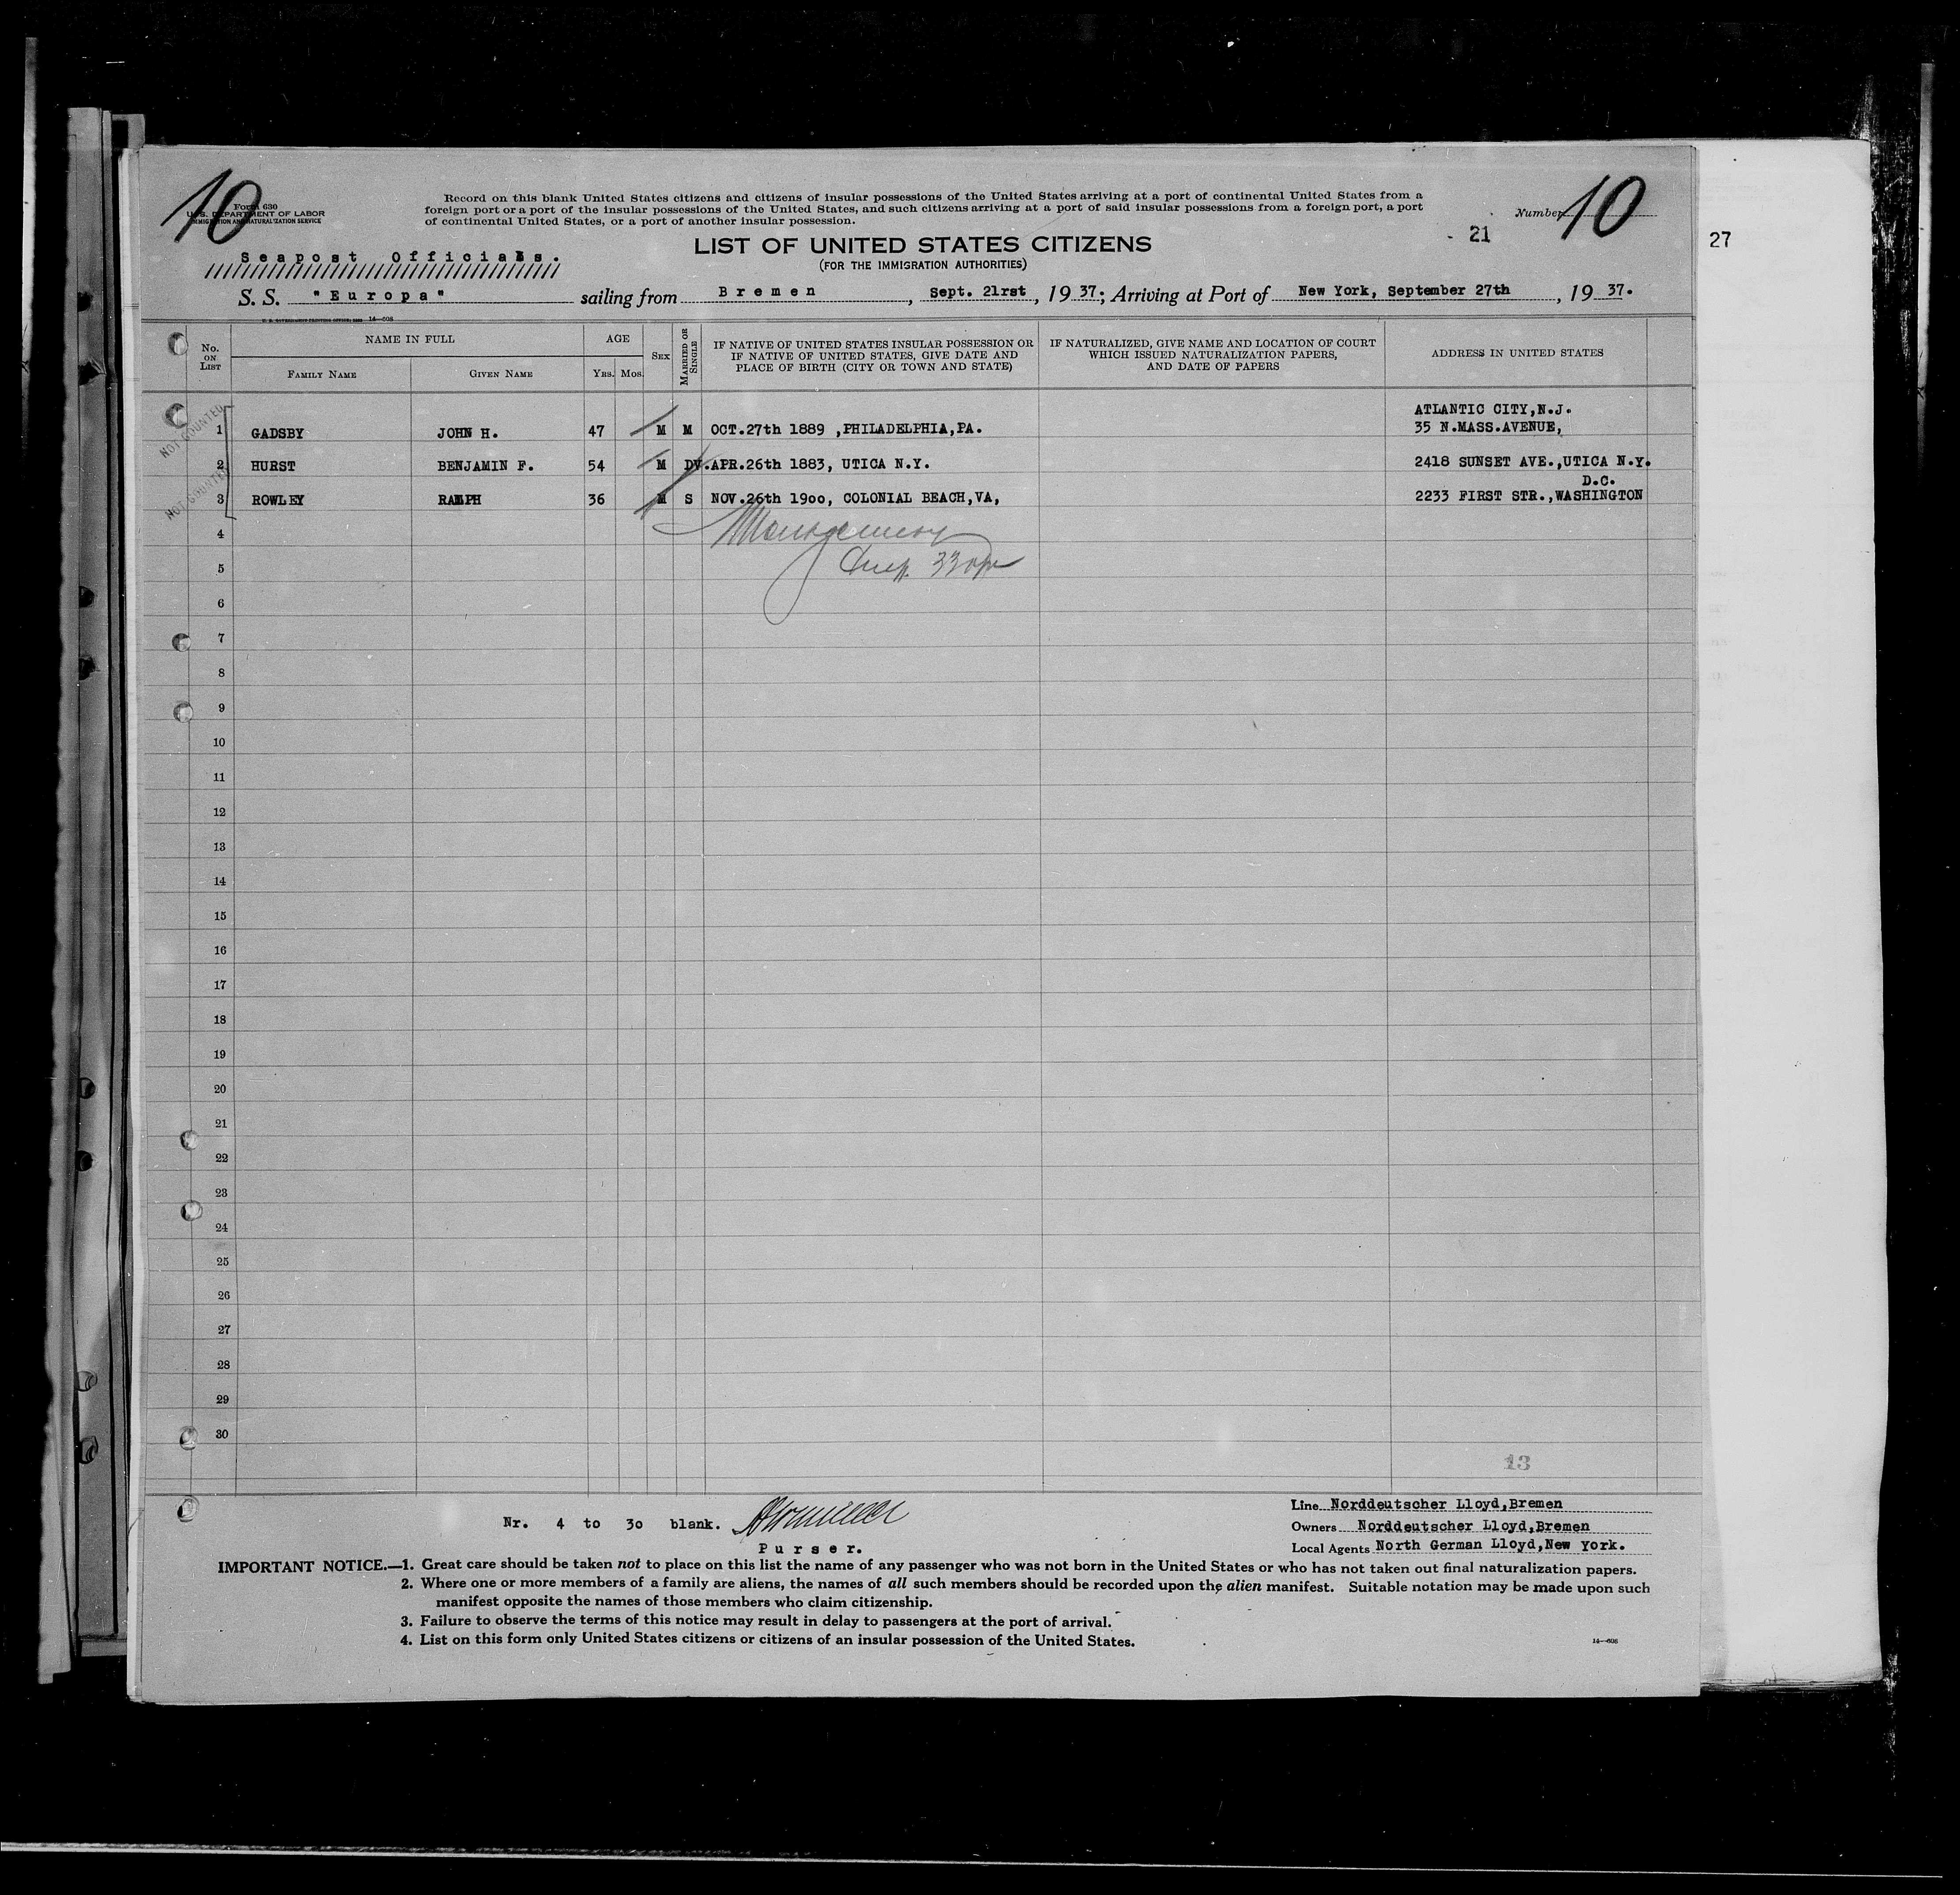 10
Form 630
U. S. DEPARTMENT OF LABOR
IMMIGRATION AND NATURALIZATION SERVICE
Record on this blank United States citizens and citizens of insular possessions of the United States arriving at a port of continental United States from a
foreign port or a port of the insular possessions of the United States, and such citizens arriving at a port of said insular possessions from a foreign port, a port
of continental United States, or a port of another insular possession.
Number 10
21
27
LIST OF UNITED STATES CITIZENS
(FOR THE IMMIGRATION AUTHORITIES)
Seapost Officials.
S. S. "Europa" sailing from Bremen, Sept. 21rst, 1937; Arriving at Port of New York, September 27th, 1937.
14—606
No. ON LIST
NAME IN FULL
FAMILY NAME
GIVEN NAME
AGE
YRS. MOS.
SEX
MARRIED OR SINGLE
IF NATIVE OF UNITED STATES INSULAR POSSESSION OR
IF NATIVE OF UNITED STATES, GIVE DATE AND
PLACE OF BIRTH (CITY OR TOWN AND STATE)
IF NATURALIZED, GIVE NAME AND LOCATION OF COURT
WHICH ISSUED NATURALIZATION PAPERS,
AND DATE OF PAPERS
ADDRESS IN UNITED STATES
NOT COUNTED
ATLANTIC CITY,N.J.
1 GADSBY JOHN H. 47 M M OCT.27th 1889 ,PHILADELPHIA,PA. 35 N.MASS.AVENUE,
2 HURST BENJAMIN F. 54 M DV. APR.26th 1883, UTICA N.Y. 2418 SUNSET AVE.,UTICA N.Y.
NOT COUNTED
D.C.
3 ROWLEY RALPH 36 M S NOV.26th 19oo, COLONIAL BEACH,VA, 2233 FIRST STR.,WASHINGTON
4 Montgomery
5
6
7
8
9
10
11
12
13
14
15
16
17
18
19
20
21
22
23
24
25
26
27
28
29
30
13
Nr. 4 to 3o blank.
Purser.
Line Norddeutscher Lloyd,Bremen
Owners Norddeutscher Lloyd,Bremen
Local Agents North German Lloyd,New York.
IMPORTANT NOTICE.—1. Great care should be taken not to place on this list the name of any passenger who was not born in the United States or who has not taken out final naturalization papers.
2. Where one or more members of a family are aliens, the names of all such members should be recorded upon the alien manifest. Suitable notation may be made upon such
manifest opposite the names of those members who claim citizenship.
3. Failure to observe the terms of this notice may result in delay to passengers at the port of arrival.
4. List on this form only United States citizens or citizens of an insular possession of the United States.
14—606